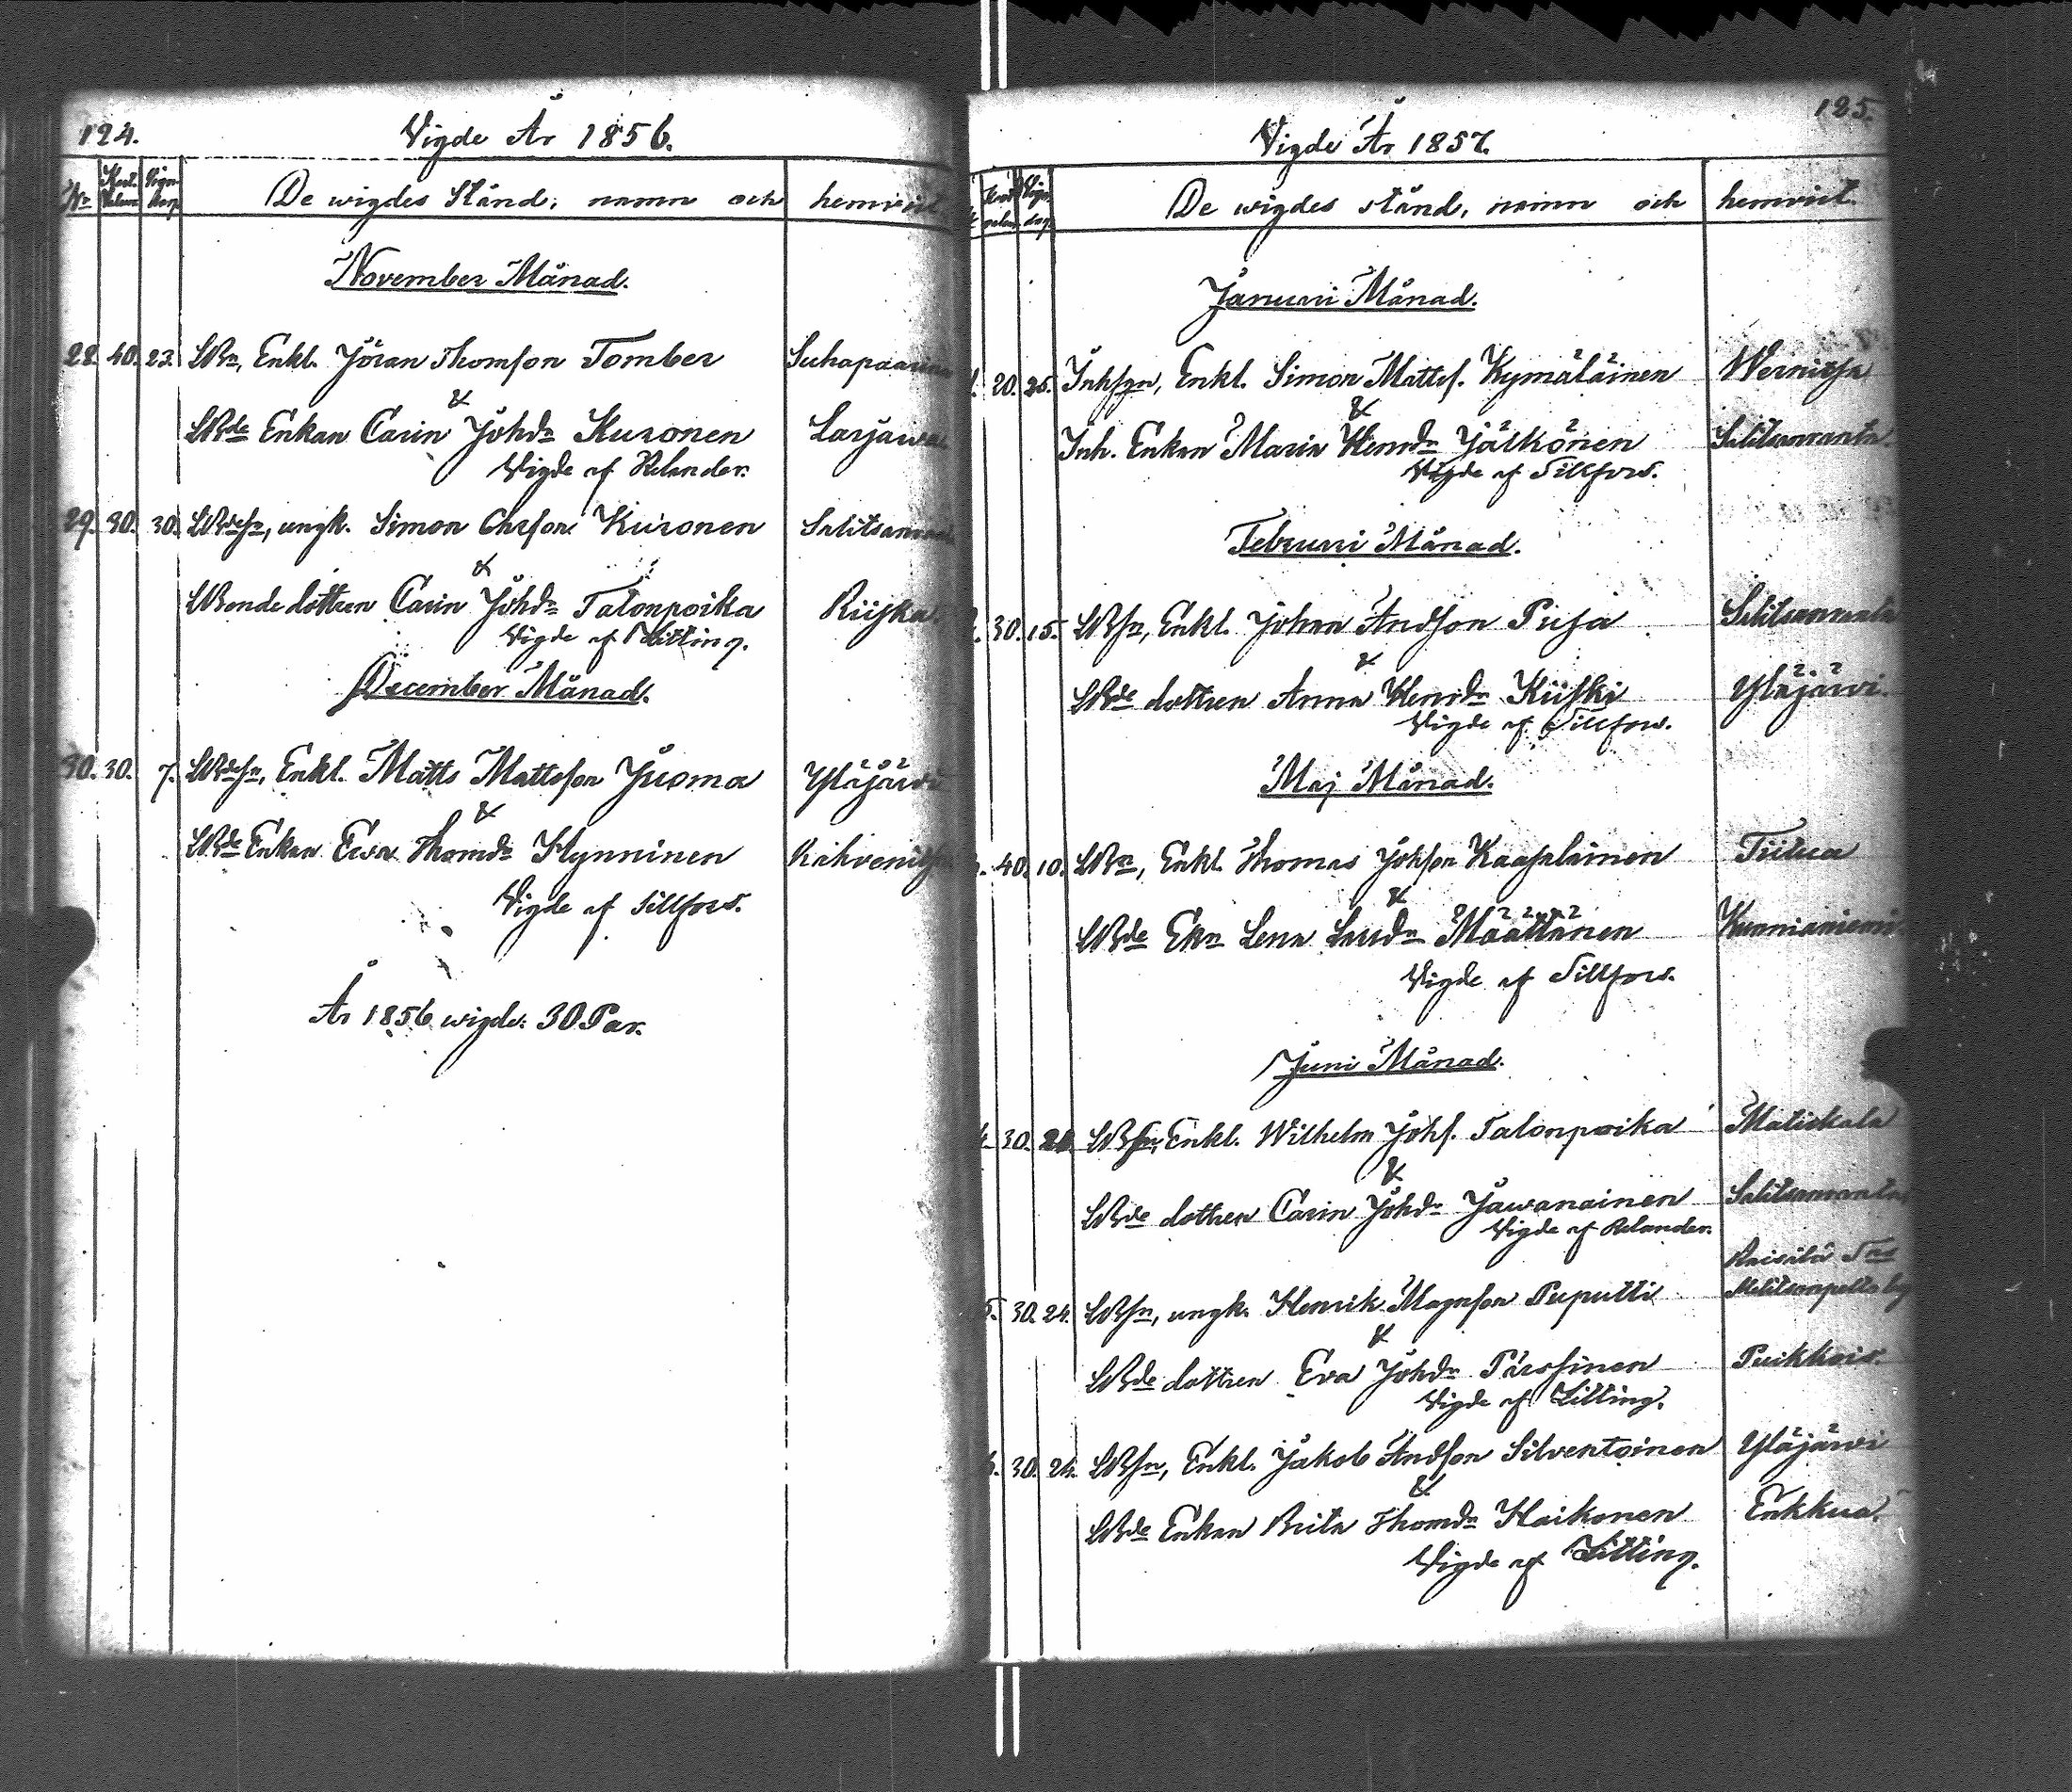 124.
Vigde År 1856.
De wigdes Stånd, namn och hemvist
November Månad.
28. 40. 23. LBn, Enkl. Jöran Thomson Tomber
&
LBde Enkan Carin Johdn Kuronen Larjawa
Vigde af Relander.
29. 30. 30. LBdesn, ungk. Simon Chrson Kuronen
&
LBonde dottren Carin Johdn Talonpoika Riiska
Vigde af Litting.
December Månad.
30. 30. 7. LBdesn, Enkl. Matts Mattsson Juoma Yläjärvi
&
LBde Enkan Ewa Thomdn Hynninen Rahvenitsa
Vigde af Sillfors.
År 1856 wigde: 30 Par.
125.
Vigde År 1857.
De wigdes stånd, namn och hemvist.
Januari Månad.
1. 20. 25. Inhsn, Enkl. Simon Mattsf. Kymäläinen Wernitsa
&
Inh. Enkan Maria Henrdn Jälkönen Salitsanranta
Vigde af Sillfors.
Februari Månad.
30. 15. LBsn, Enkl. Johan Andson Pusa Salitsanranta
&
LBde dottren Anna Henrdn Kiiski Yläjärvi.
Vigde af Sillfors.
Maj Månad.
40. 10. LBn, Enkl. Thomas Johson Kaasalainen Tiitua
&
LBde Ekn Lena Larsdn Määttänen Kunnianiemi
Vigde af Sillfors.
Juni Månad.
30. LBsn, Enkl. Wilhelm Johs. Talonpoika Matiskala
&
LBde dottren Carin Johdn Jawanainen Salitsanranta
Vigde af Relander.
Räisälä Sns
5. 30. 24. LBsn, ungk. Henrik Magnson Puputti
&
LBde dottren Eva Johdn Pärssinen Puikkois.
Vigde af Litting.
6. 30. 24. LBsn, Enkl. Jakob Andson Silventoinen Yläjärvi
&
LBde Enkan Brita Thomdn Haikonen Enkkua.
Vigde af Litting.